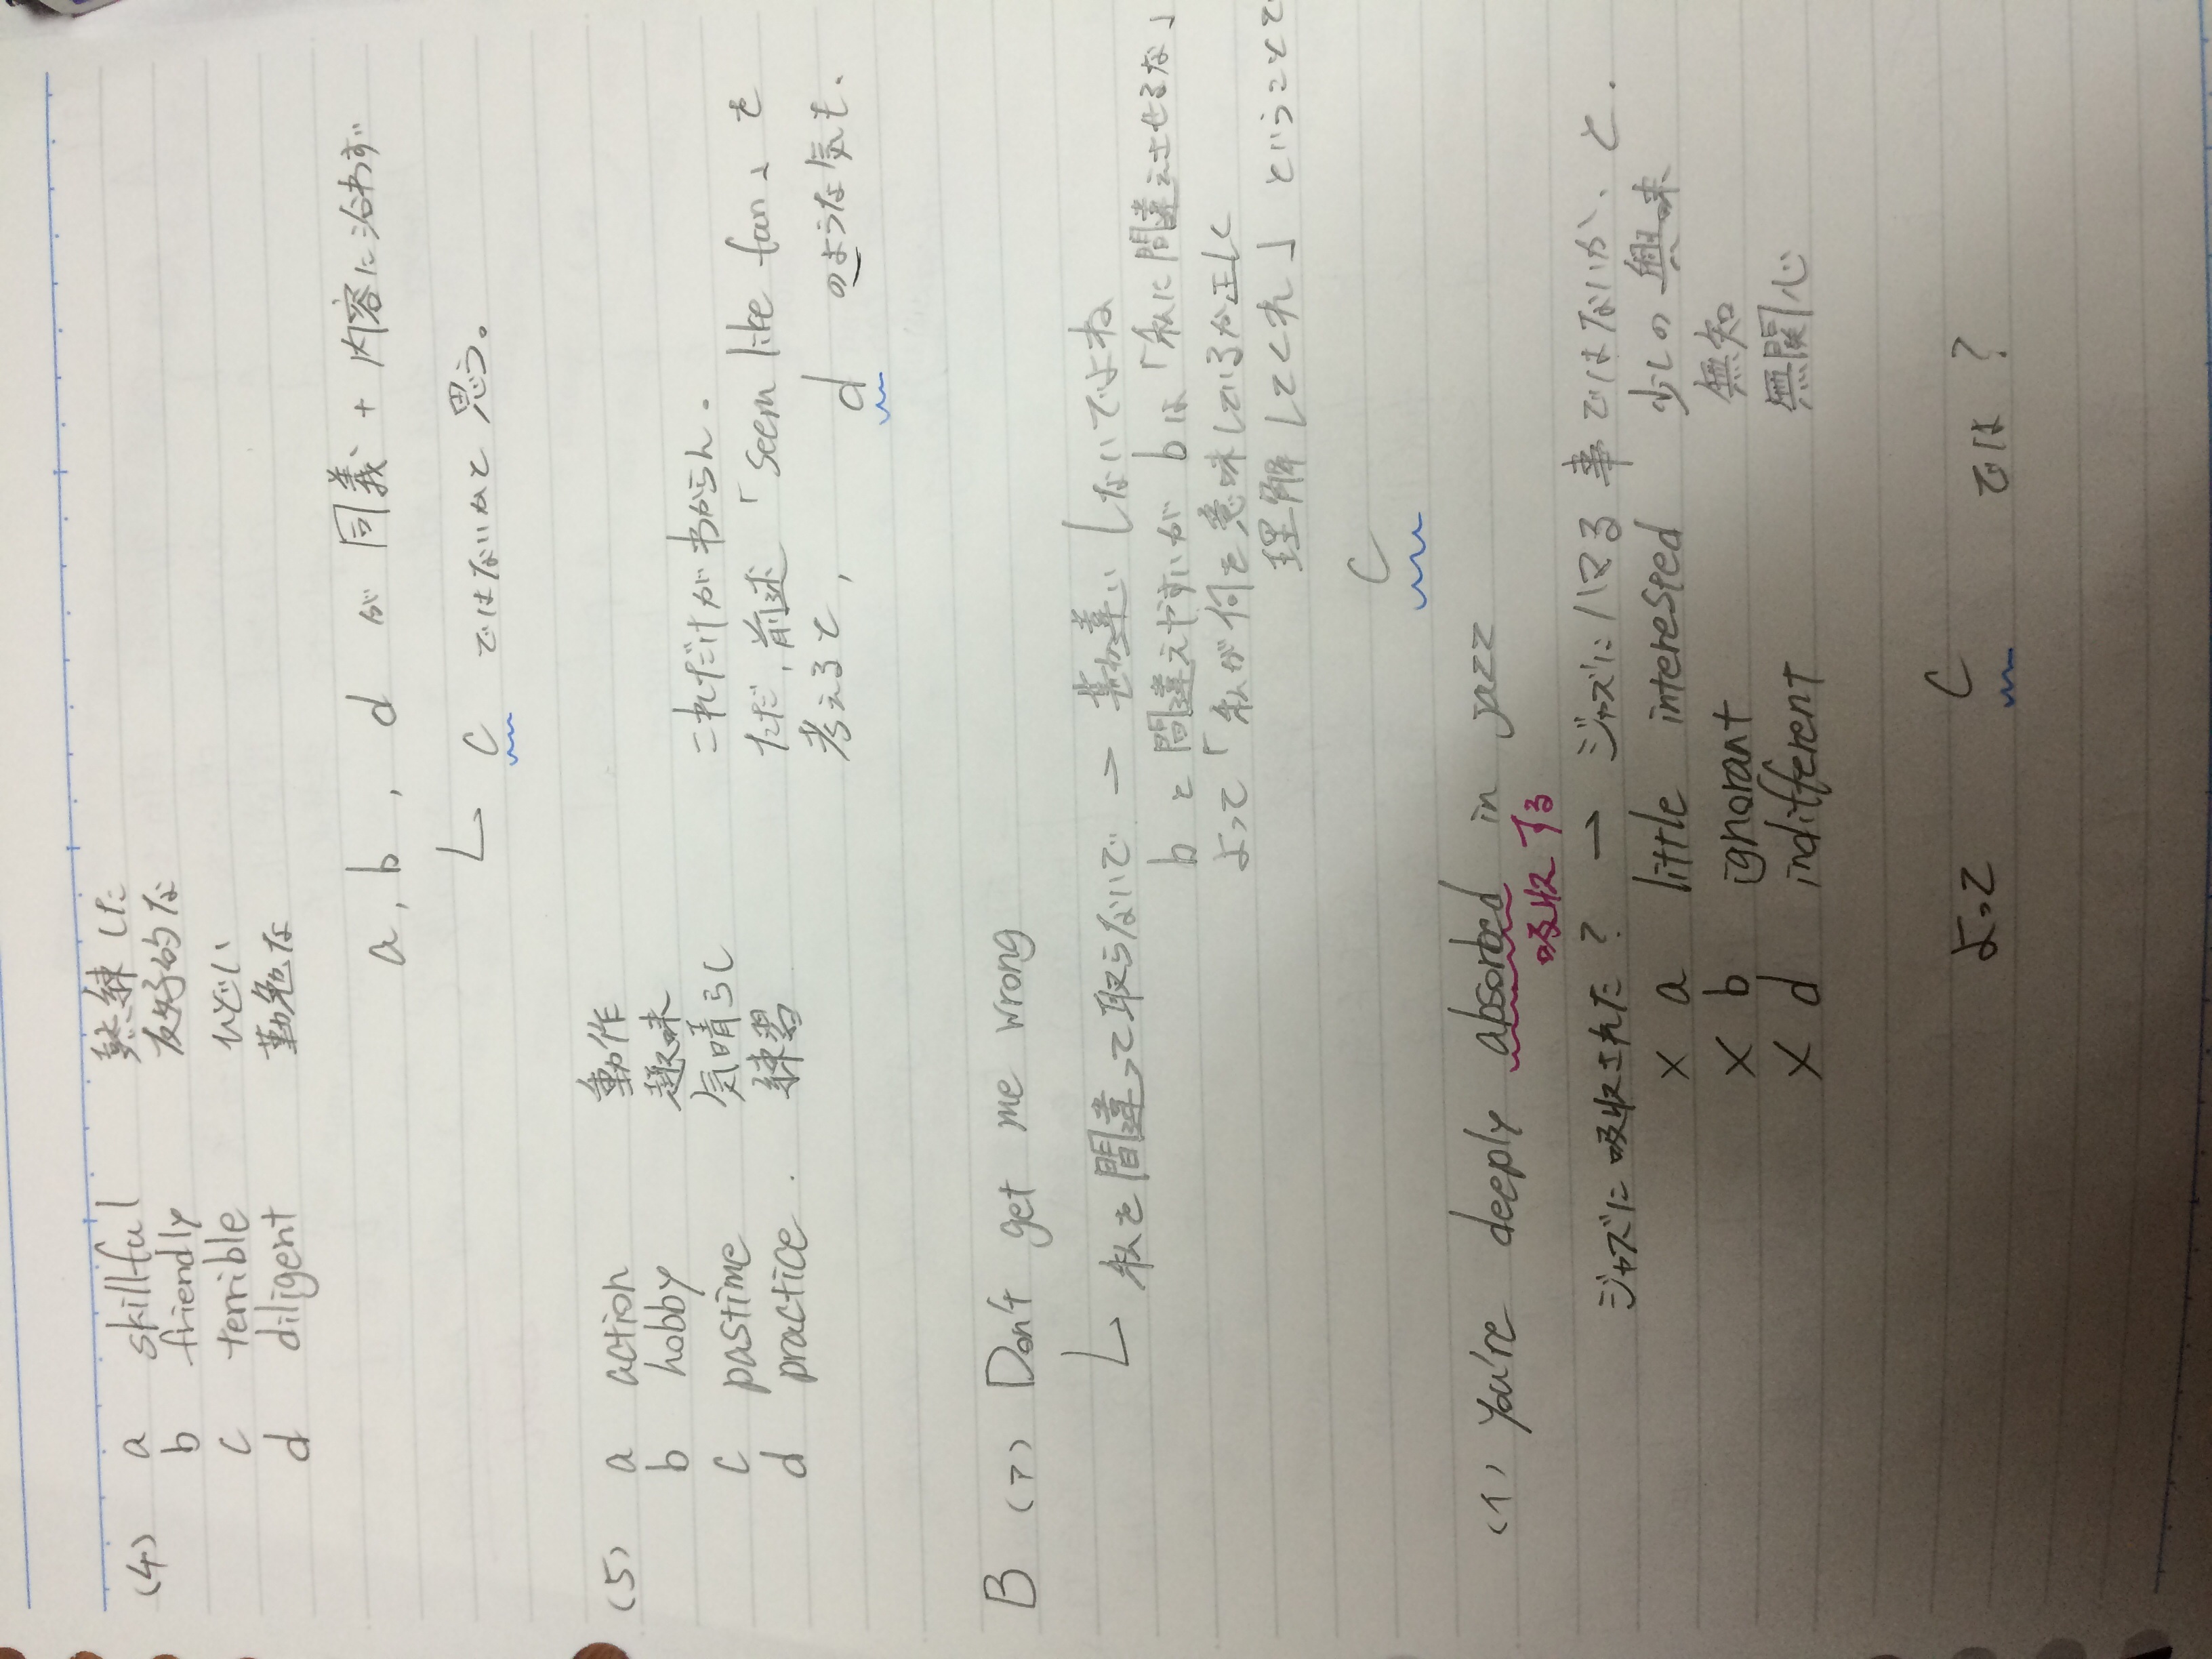 (4) a skillful 熟練した
b friendly 友好的な
c terrible ひどい
d diligent 勤勉な
a, b, d が 同義 + 内容に沿わず
c ではないかと思う。
(5) a action 動作
b hobby 趣味
c pastime 気晴らし
d practice. 練習
これだけがわからん.
ただ, 前述「seem like fun」を
考えると,
d のような気も.
B (ア) Don't get me wrong
私を間違って取らないで → 勘違いしないでよね
bと間違えやすいがbは「私に間違えさせるな」
よって「私が何を意味しているか正しく
理解してくれ」ということで
c
(イ) You're deeply absorbed in jazz
吸収する
ジャズに吸収された? → ジャズにハマる事ではないか、と.
× a little interested 少しの興味
× b ignorant 無知
× d indifferent 無関心
よって c では?